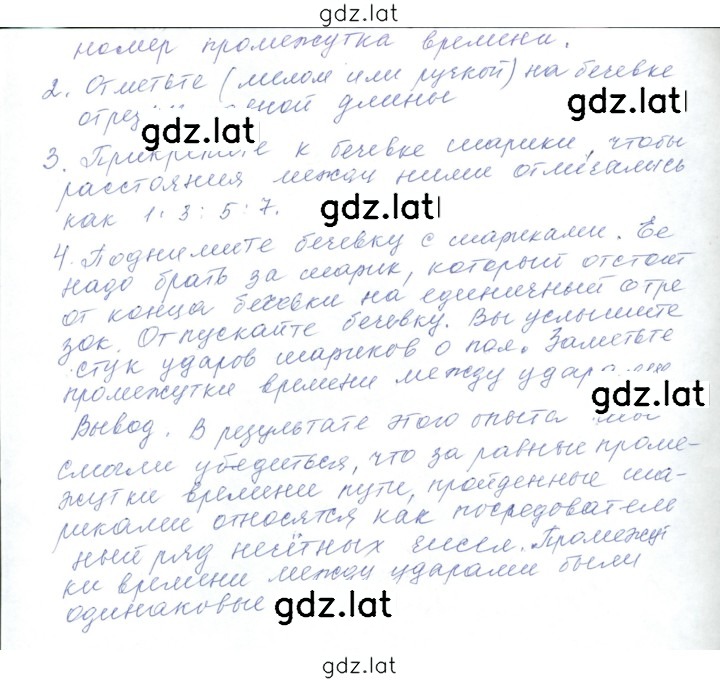 gdz.lat
номер промежутка времени.
2. Отметьте (мелом или ручкой) на бечевке
длины
gdz.lat
gdz.lat
3. к бечевке шарики, чтобы
расстояния между ними отличались
как 1:3:5:7.
gdz.lat
4. Поднимите бечевку с шариками. Ее
надо брать за шарик, который отстоит
от конца бечевки на единичный отре
зок. Отпускайте бечевку. Вы услышите
стук ударов шариков о пол. Заметьте
промежутки времени между
gdz.lat
Вывод. В результате этого опыта мы
смогли убедиться, что за равные проме-
жутки времени пути, пройденные ша-
риками относятся как последователь
ный ряд нечётных чисел. Промежут
ки времени между ударами были
одинаковые
gdz.lat
gdz.lat